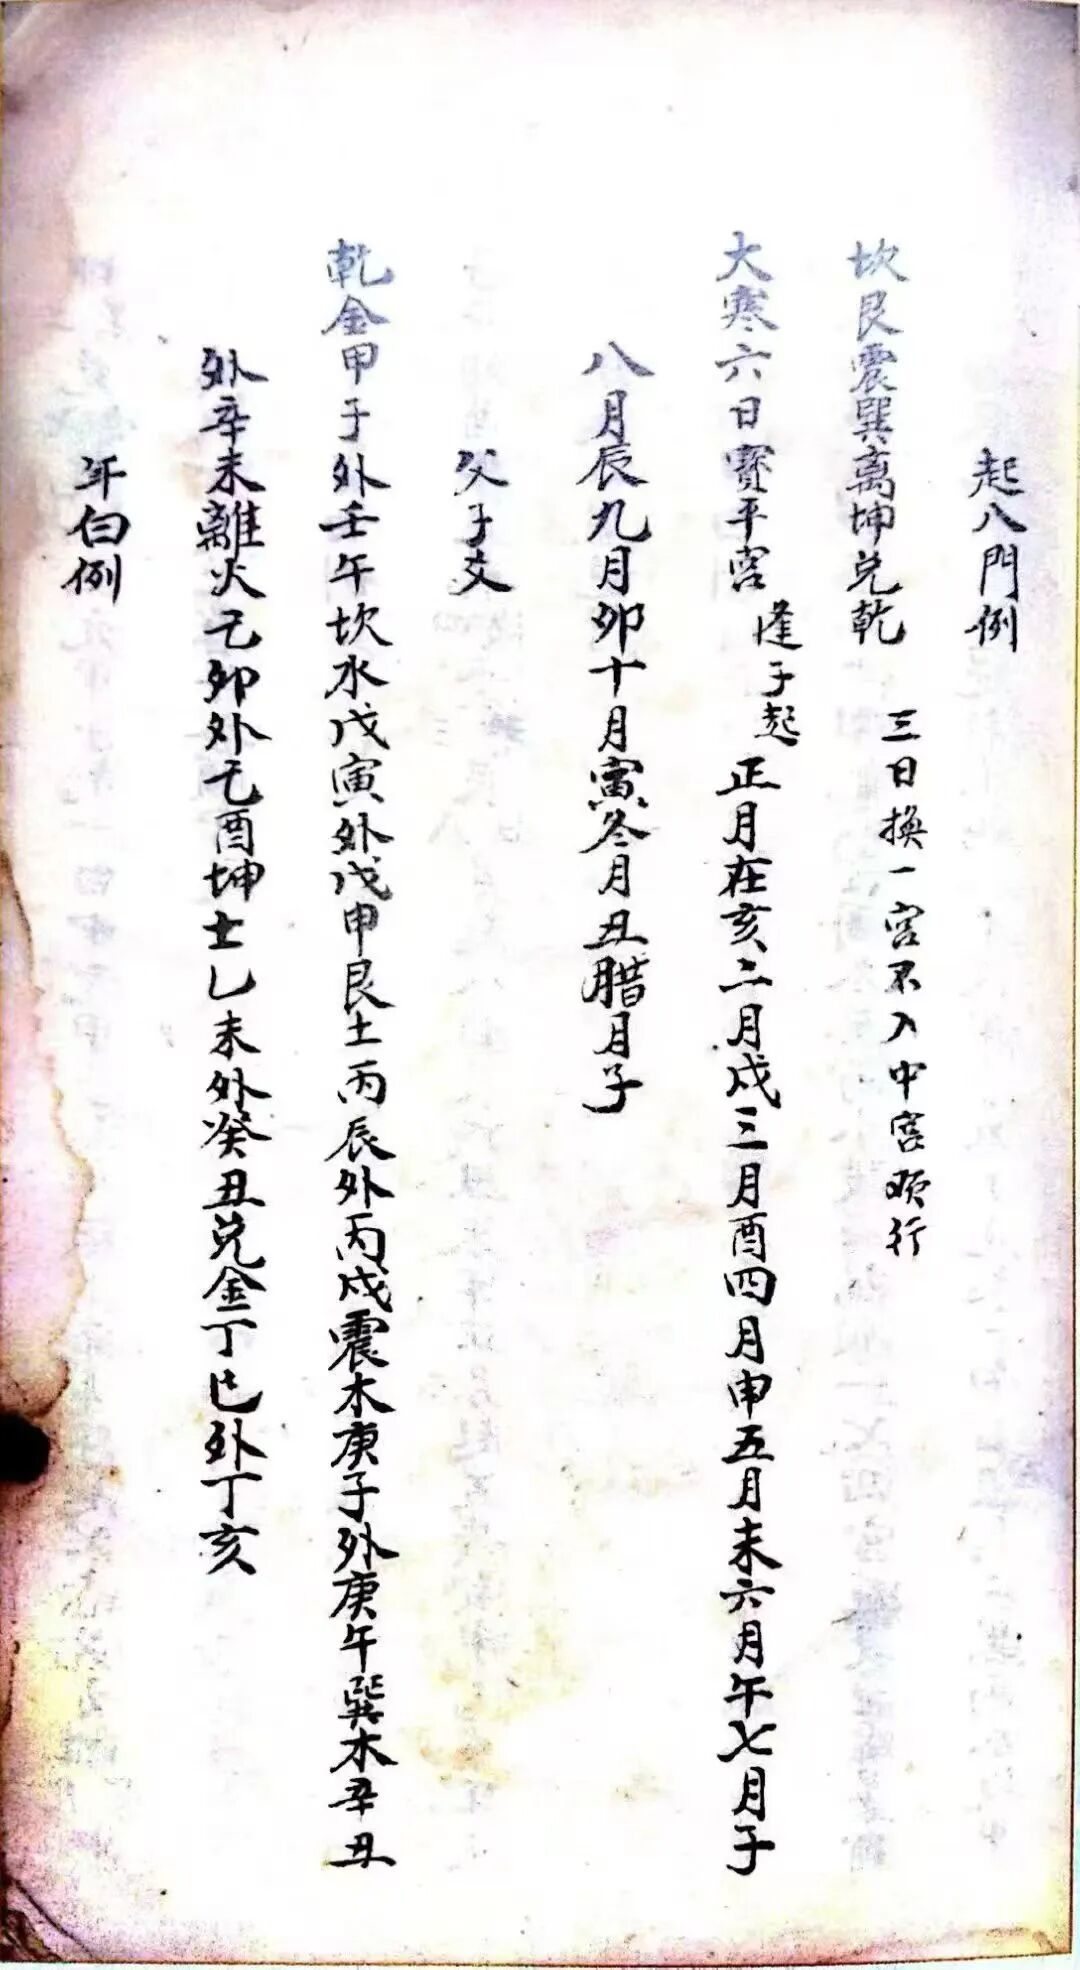 起八門例
坎艮震巽离坤兑乾 三日換一宮不入中宮順行
大寒六日寶平宮 逢子起 正月在亥二月戍三月酉四月申五月未六月午七月子
八月辰九月卯十月寅冬月丑腊月子
父子爻
乾金甲子外壬午坎水戊寅外戊申艮土丙辰外丙戍震木庚子外庚午巽木辛丑
外辛未離火己卯外己酉坤土乙未外癸丑兑金丁巳外丁亥
年白例